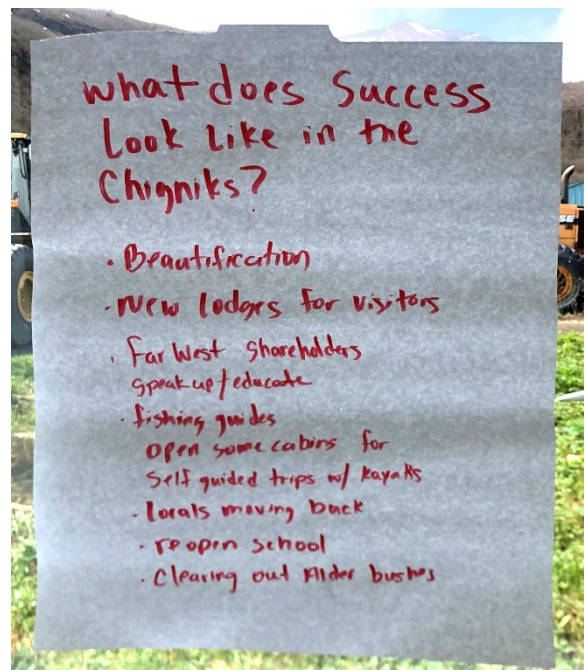 What does Success
Look Like in the
Chigniks?
• Beautification
• New lodges for visitors
• Far West Shareholders
speak up / educate
• fishing guides
open some cabins for
Self guided trips w/ kayaks
• Locals moving back
• reopen school
• Clearing out Alder bushes
SE